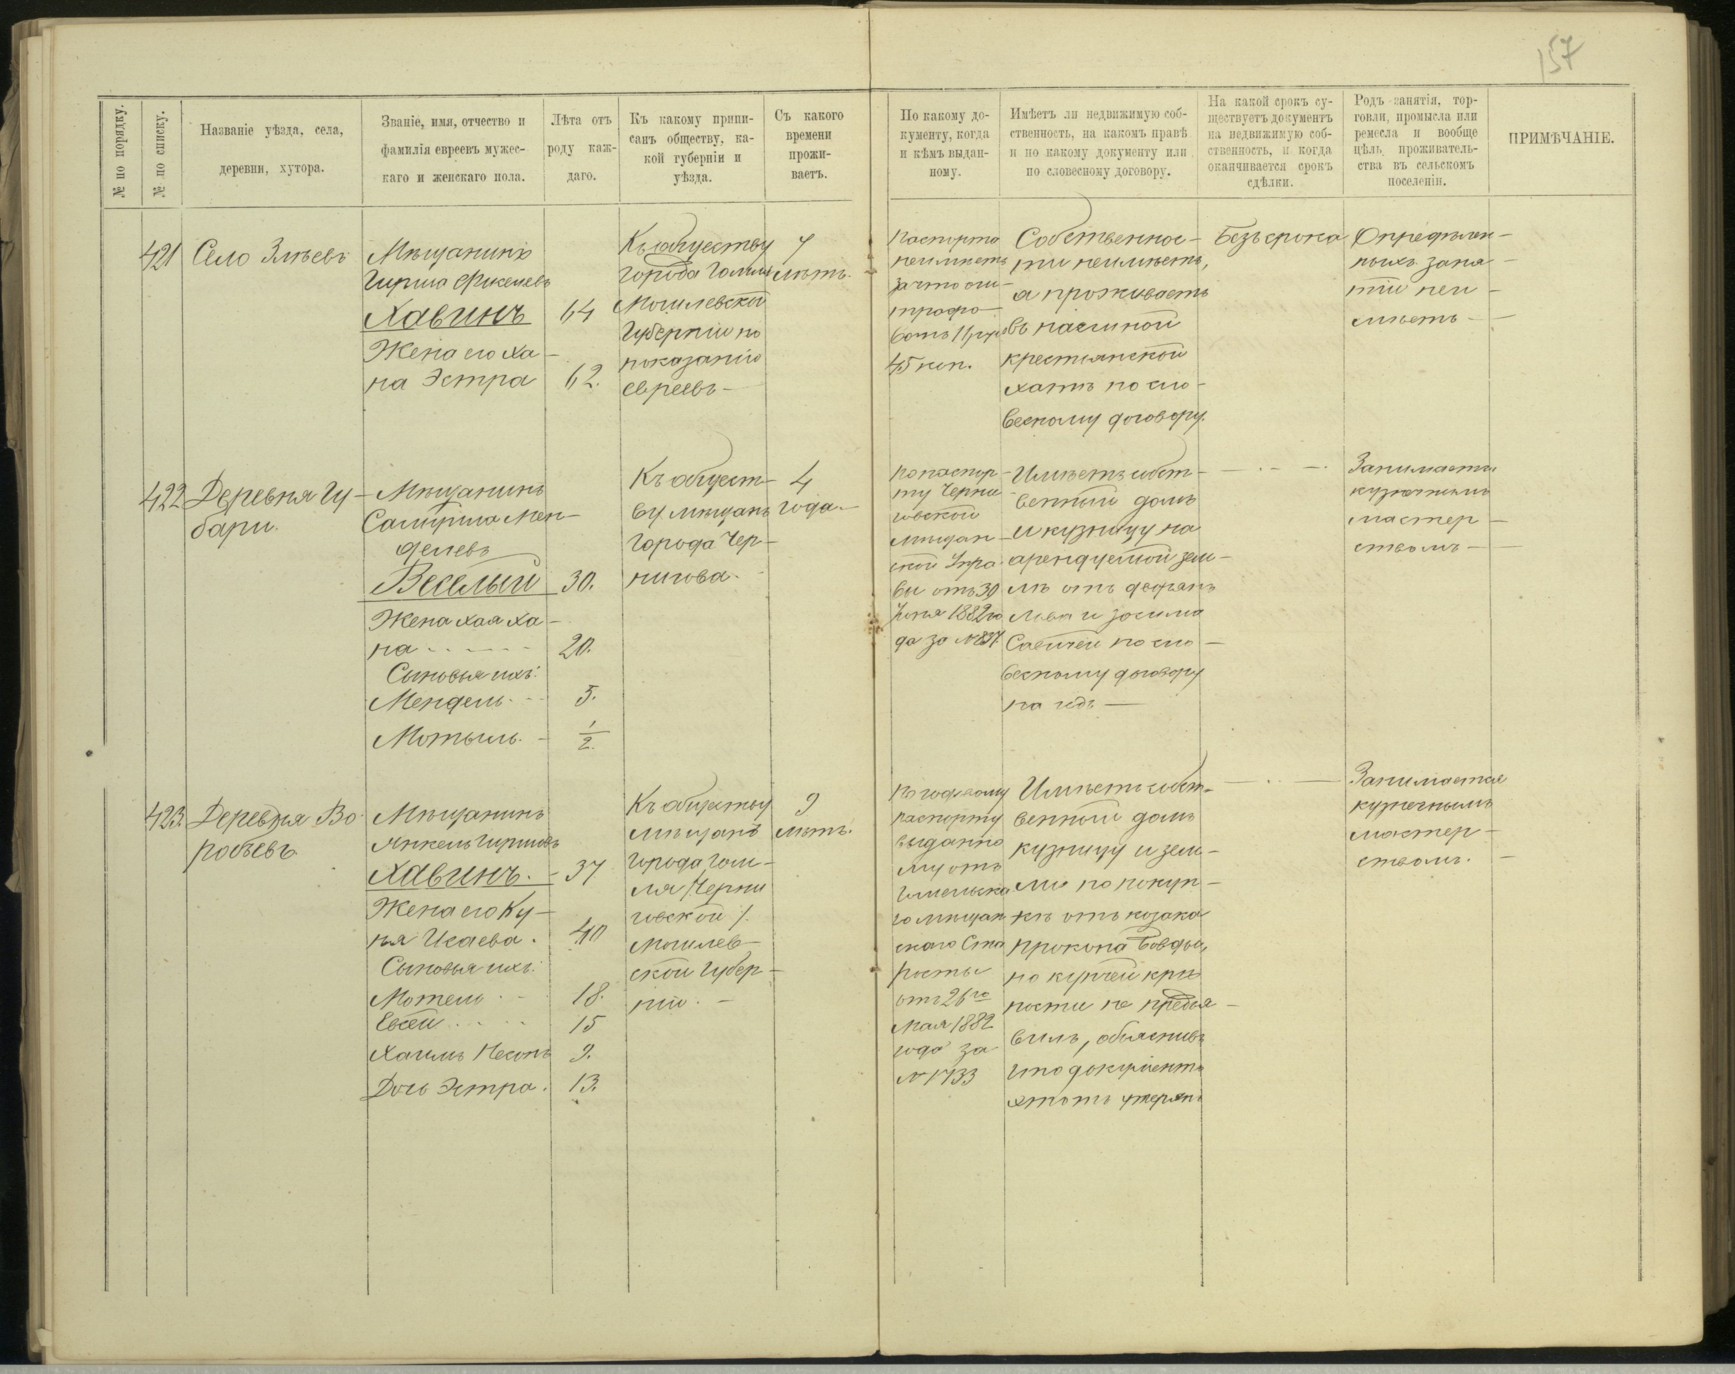 157
№ по порядку.
№ по списку.
Названіе уѣзда, села,
деревни, хутора.
Званіе, имя, отчество и
фамилія евреевъ мужес-
каго и женскаго пола.
Лѣта отъ
роду каж-
даго.
Къ какому припи-
санъ обществу, ка-
кой губерніи и
уѣзда.
Съ какого
времени
прожи-
ваетъ.
По какому до-
кументу, когда
и кѣмъ выдан-
ному.
Имѣетъ ли недвижимую соб-
ственность, на какомъ правѣ
и по какому документу или
по словесному договору.
На какой срокъ су-
ществуетъ документъ
на недвижимую соб-
ственность, и когда
оканчивается срокъ
сдѣлки.
Родъ занятія, тор-
говли, промысла или
ремесла и вообще
цѣль проживатель-
ства въ сельскомъ
поселеніи.
ПРИМѢЧАНІЕ.
421
Село Змѣевъ
Мѣщанинъ
Гирша
Хавинъ 64
Жена его Ха-
на Эстра 62.
Къ обществу
города Гомля
Могилевской
Губерніи по
показанію
евреевъ —
7
лѣтъ.
Паспорта
неимѣетъ
за что ош-
трафо-
ванъ 11 руб
45 коп.
Собственнос-
ти неимѣетъ,
а проживаетъ
въ наемной
крестьянской
хатѣ по сло-
весному договору.
Безъ срока
Опредѣлен-
ныхъ заня-
тій неи-
мѣетъ —
422
Деревня Гу-
бари.
Мѣщанинъ
Мен-
делевъ
Веселый 30.
Жена Хая Ха-
на 20.
Сыновья ихъ:
Мендель 5.
Мотыль 1/2.
Къ общест-
ву мѣщанъ
города Чер-
нигова.
4
года. —
По паспор-
ту Черни-
говской
мѣщан-
ской Упра-
вы отъ 30
1882 го-
да за № 837
Имѣетъ собст-
венный домъ
и кузницу на
арендуемой зем-
лѣ отъ
по сло-
весному договору
на годъ —
— . — .
Занимается
кузнечнымъ
мастер-
ствомъ —
423.
Деревня Во-
робьевъ
Мѣщанинъ
Янкель Гиршовъ
Хавинъ. - 37
Жена его Ку-
ня Исаева. 40
Сыновья ихъ:
Мотель 18.
Евсей 15
Хаимъ Несонъ 9.
Дочь Эстра. 13.
Къ обществу
мѣщанъ
города Гом-
ля /Черни
говской /.
Могилев-
ской Губер-
ніи. —
9
лѣтъ.
По годовому
паспорту
выданно
му отъ
Гомельска
го мѣщан
скаго Ста
росты
отъ 26го
Мая 1882
года за
№ 1733
Имѣетъ собст-
венный домъ
кузницу и зем-
лю по покуп-
кѣ отъ козака
Прокопа
но купчей крѣ
пости не предъя-
вилъ, объяснивъ
что документъ
этотъ утерянъ
— . —
Занимается
кузнечнымъ
мастер-
ствомъ.